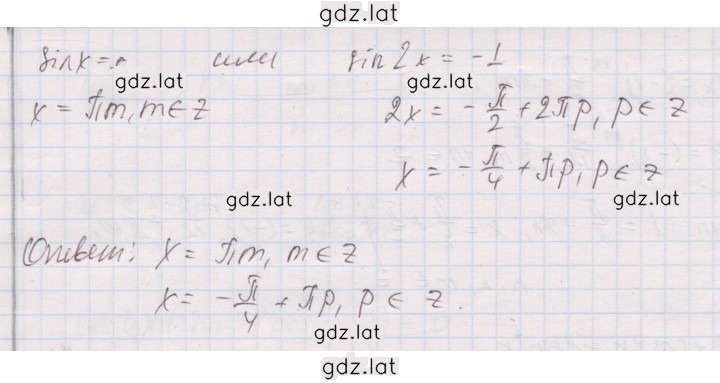 gdz.lat
sin x = или sin 2x = -1
gdz.lat
x = πm, m ∈ z 2x = -π/2 + 2πp, p ∈ z
x = -π/4 + πp, p ∈ z
gdz.lat gdz.lat
Ответ: x = πm, m ∈ z
x = -π/4 + πp, p ∈ z.
gdz.lat
gdz.lat